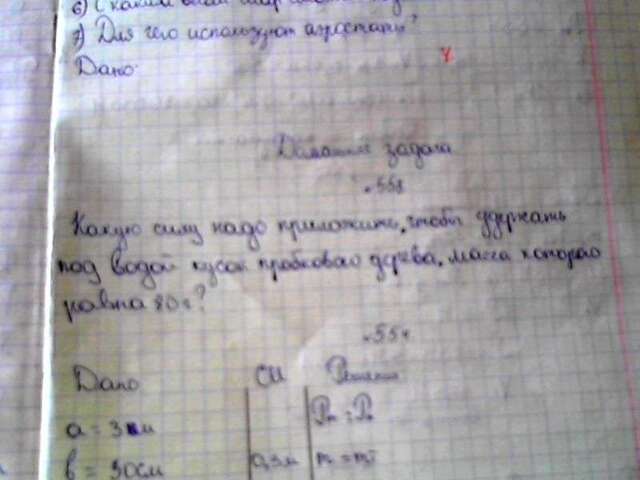 6) С каким
7) Для чего используют аэростаты?
Дано:
Домашняя задача
Какую силу надо приложить, чтобы удержать
под водой кусок пробкового дерева, масса которого
равна 80 г?
Дано
СИ
Решение
a = 3 м
b = 30 см
0,3 м